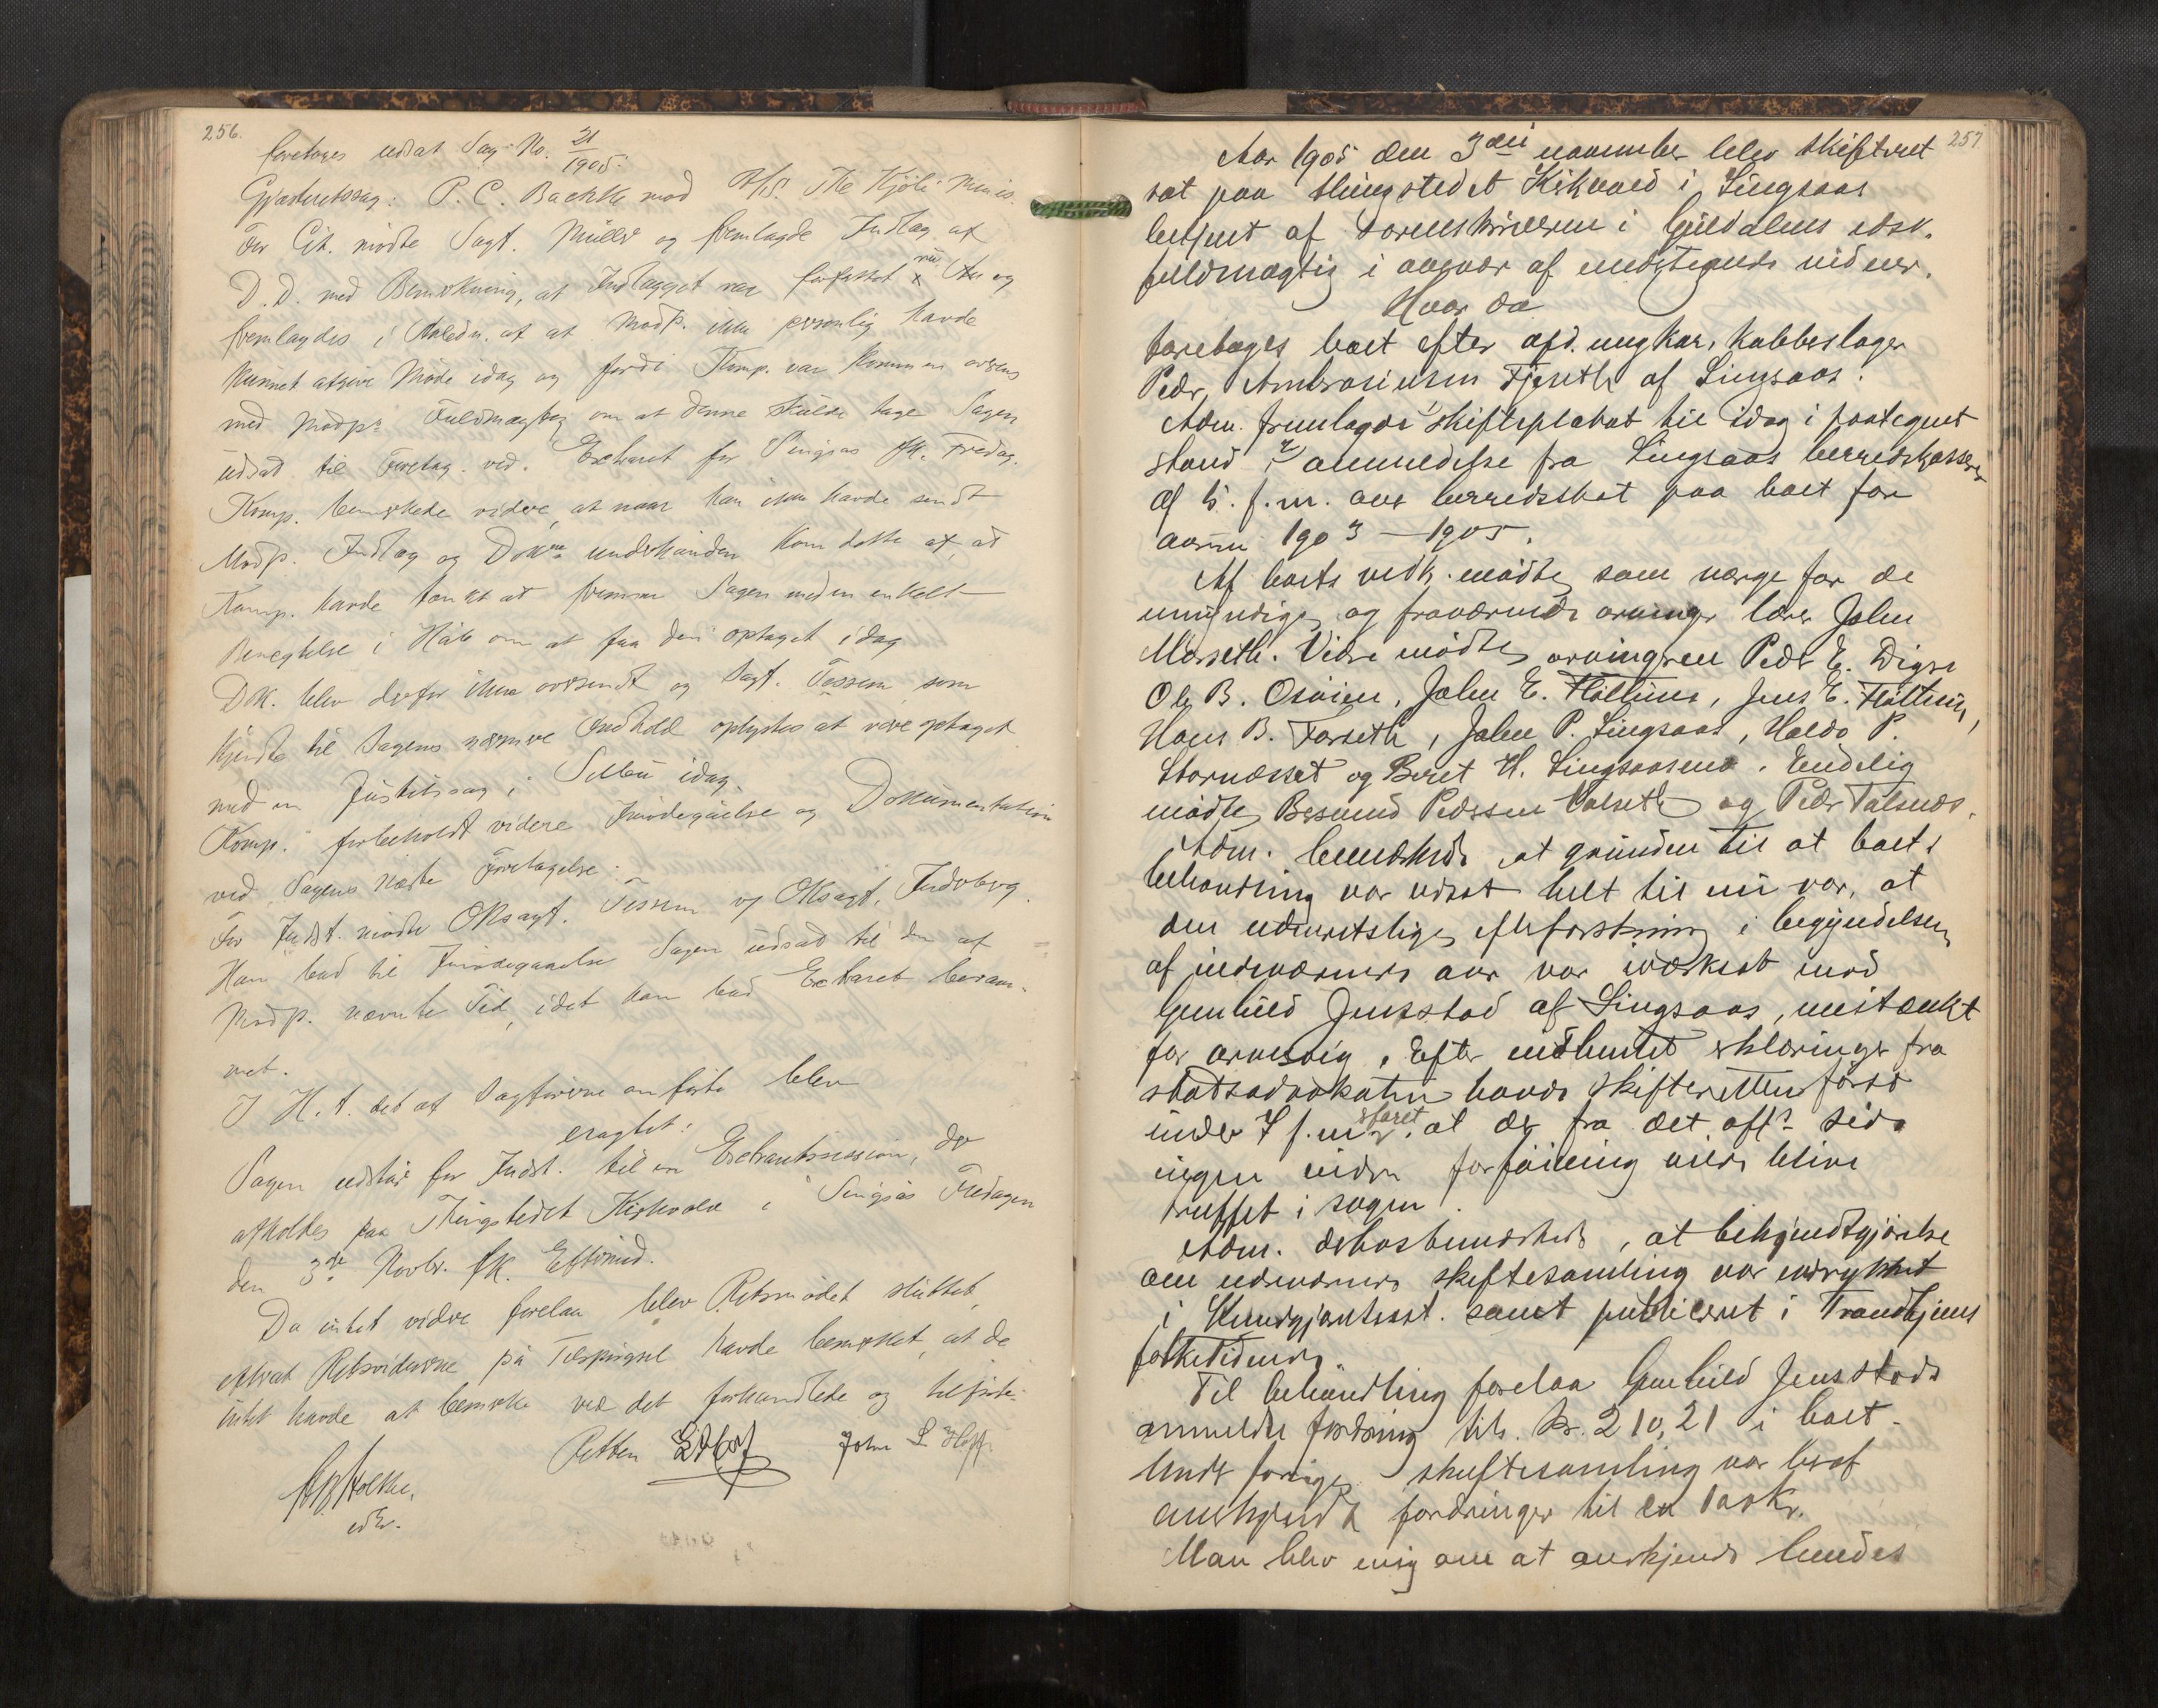 256.
foretoges udsat Sag No. 31/1905:
Gjæsteretssag: P. C. Bachke mod A/S. The Kjöli Mines.
For Cit. mødte Sagf. Müller og fremlagde Indlæg af
D. D. med Bemerkning, at Indlægget var forfattet nu og
fremlagdes i Anledn. af at Modp. ikke personlig havde
kunnet afgive Møde idag og fordi Komp. var kommen overens
med Modps Fuldmægtig om at denne skulde tage Sagen
udsat til Foretag. ved Extraret for Singsås fk. Fredag.
Komp. bemerkede videre, at naar han ikke havde sendt
Modp. Indlæg og Dokne underhånden kom dette af, at
Komp. havde tænkt at fremme Sagen med en enkelt
Benegtelse i Håb om at faa den optaget idag
Dok. blev derfor ikke oversendt og Sagf. Tessem som
kjendte til Sagens nærmere Indhold oplystes at være optaget
med en Justitssag i Selbu idag.
Komp. forbeholdt videre Imødegåelse og Dokumentation
ved Sagens næste Foretagelse.
For Indst. mødte ORsagf. Tessem v/ ORsagf. Indreberg.
Han bad til Imødegaaelse Sagen udsat til den af
Modp. nævnte Tid, idet han bad Extraret beram-
met.
I H. t. det af Sagførerne anførte blev
eragtet:
Sagen udstår for Indst. til en Extraretssession, der
afholdes paa Thingstedet Kirkvold i Singsås Fredagen
den 3de Novbr. fk. Eftermid.
Da intet videre forelaa blev Retsmødet sluttet,
efterat Retsvidnerne på Tilspørgsel havde bemerket, at de
intet havde at bemerke ved det forhandlede og tilførte.
Retten John L Hoff
257
Aar 1905 den 3die november blev skifteret
sat paa thingstedet Kirkvold i Singsaas
betjent af sorenskriveren i Guldalens edsv.
fuldmægtig i overvær af undertegnede vidner.
Hvor da
foretoges boet efter afd. ungkar, kobberslager
Peder Ambrosiussen Fjeseth af Singsaas.
Adm. fremlagde skifteplakat til idag i paategnet
stand, anmeldelse fra Singsaas herredskasserer
af f.m. ang herredsskat paa boet for
aarene 1903 – 1905.
Af boets vedk. mødte som værge for de
umyndige og fraværende arvinger lærer John
Morseth. Videre mødte arvingerne Peder E. Digre
Ole B. Osøien, John E. Flöttum, Jens E. Flöttum,
Hans B. Forseth, John P. Singsaas, Haldo P.
Stornæsset og Beret H. Singsaasmo. Endelig
mødte Pedersen Volseth og Peder Talsnes.
Adm. bemærkede at grunden til at boets
behandling var udsat helt til nu var, at
den udenretslige efterforskning i begyndelsen
af indeværende aar var iværksat mod
Gunhild Jensstad af Singsaas, mistænkt
for arvesvig. Efter indhentet erklæringer fra
statsadvokaten havde skifteretten først
under 7 f.m. svaret at der fra det offs side
ingen videre forføining vilde blive
truffet i sagen.
Adm. derhos bemærkede, at bekjendtgjørelse
om indeværende skiftesamling var indrykket
i Kundgjørelsest. samt publiceret i Trondhjems
folketidende.
Til behandling forelaa Gunhild Jensstads
anmeldte fordring til. kr. 210,21 i boet.
Under forrige skiftesamling var heraf
anerkjendt fordringer til ca 100 kr.
Man blev enig om at anerkjende hendes